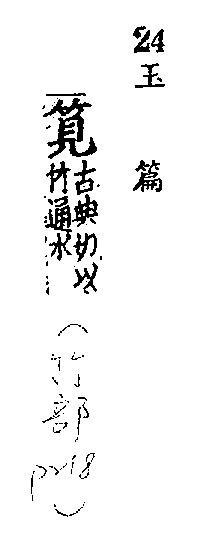 24
玉篇
筧
古典切以
竹通水
(竹部
p218)